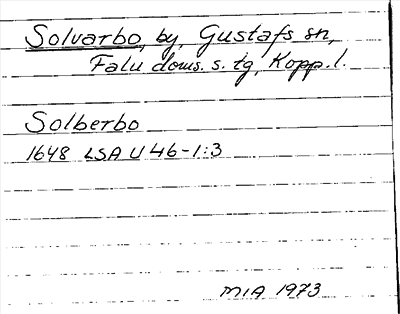 Solvarbo, by, Gustafs sn,
Falu doms. s. tg, Kopp. l.
Solberbo
1648 LSA U 46-1:3
MIA 1973